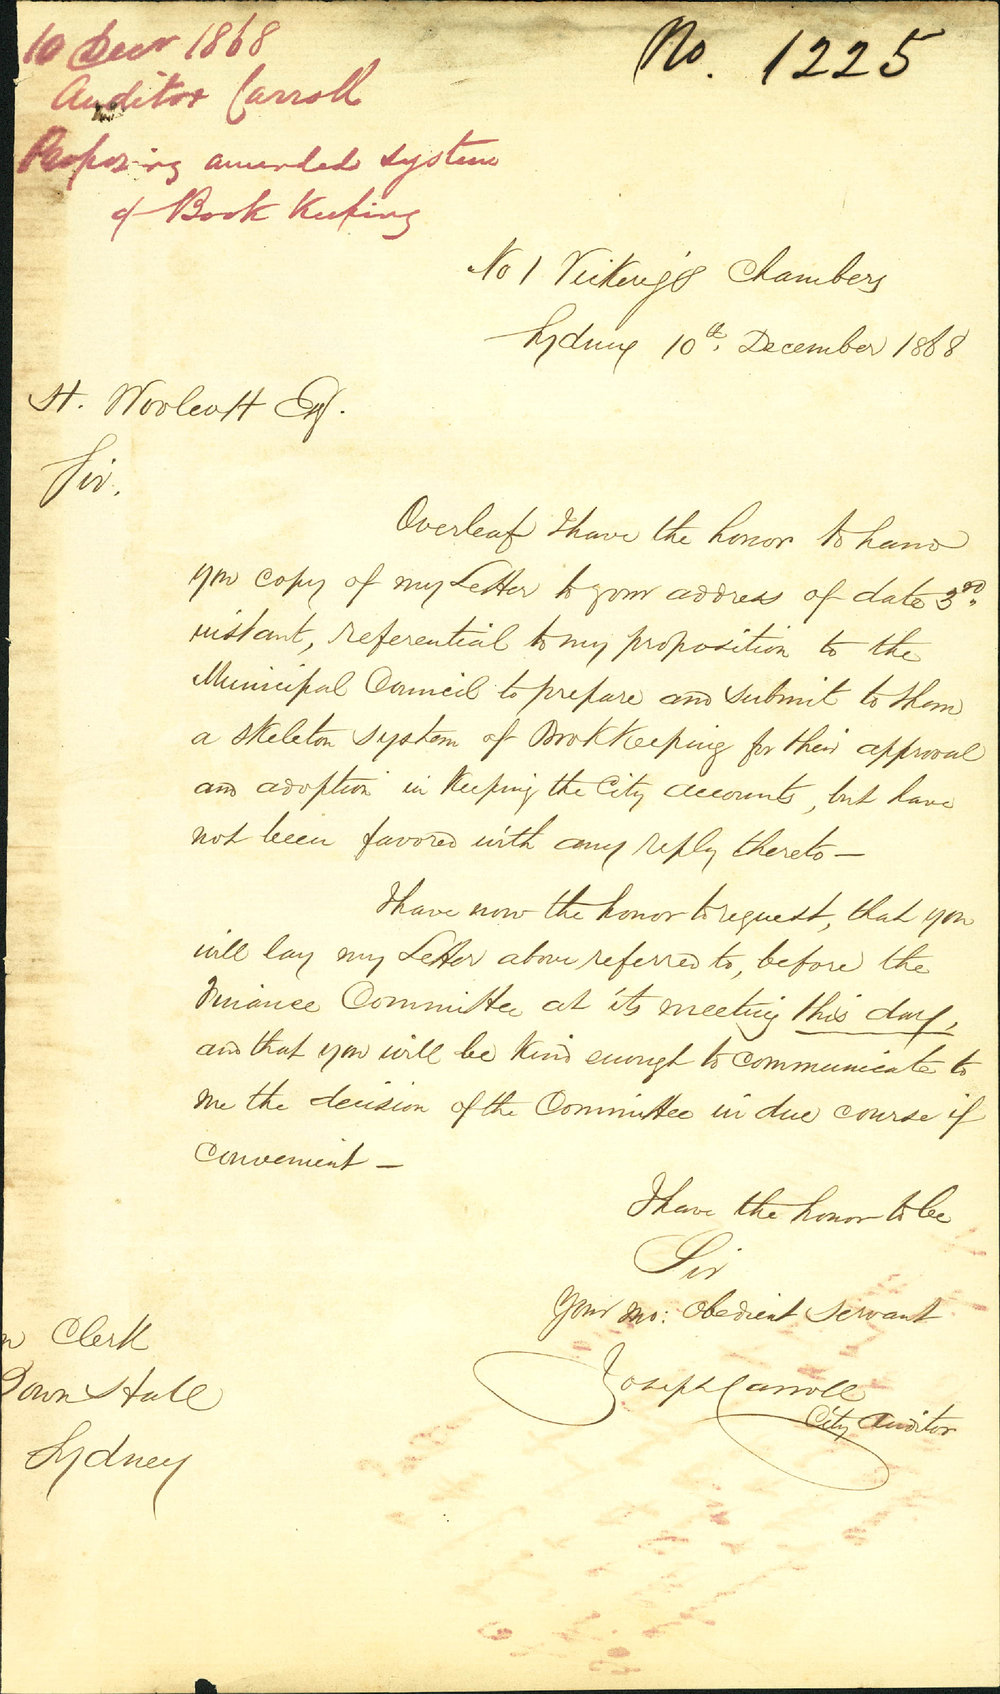 10 Decr 1868
Auditor Carroll
Proposing amended system
of Book Keeping
No. 1225
No 1 Vickery's Chambers
Sydney 10th. December 1868
H. Woolcott Esq.
Sir.
Overleaf I have the honor to hand
you copy of my Letter to your address of date 3rd.
instant, referential to my proposition to the
Municipal Council to prepare and submit to them
a skeleton system of Book Keeping for their approval
and adoption in keeping the City accounts, but have
not been favored with any reply thereto —
I have now the honor to request, that you
will lay my Letter above referred to, before the
Finance Committee at its meeting this day,
and that you will be kind enough to communicate to
me the decision of the Committee in due course if
convenient —
I have the honor to be
Sir
Your mo: obedient servant
Joseph Carroll
City Auditor
n Clerk
Town Hall
Sydney